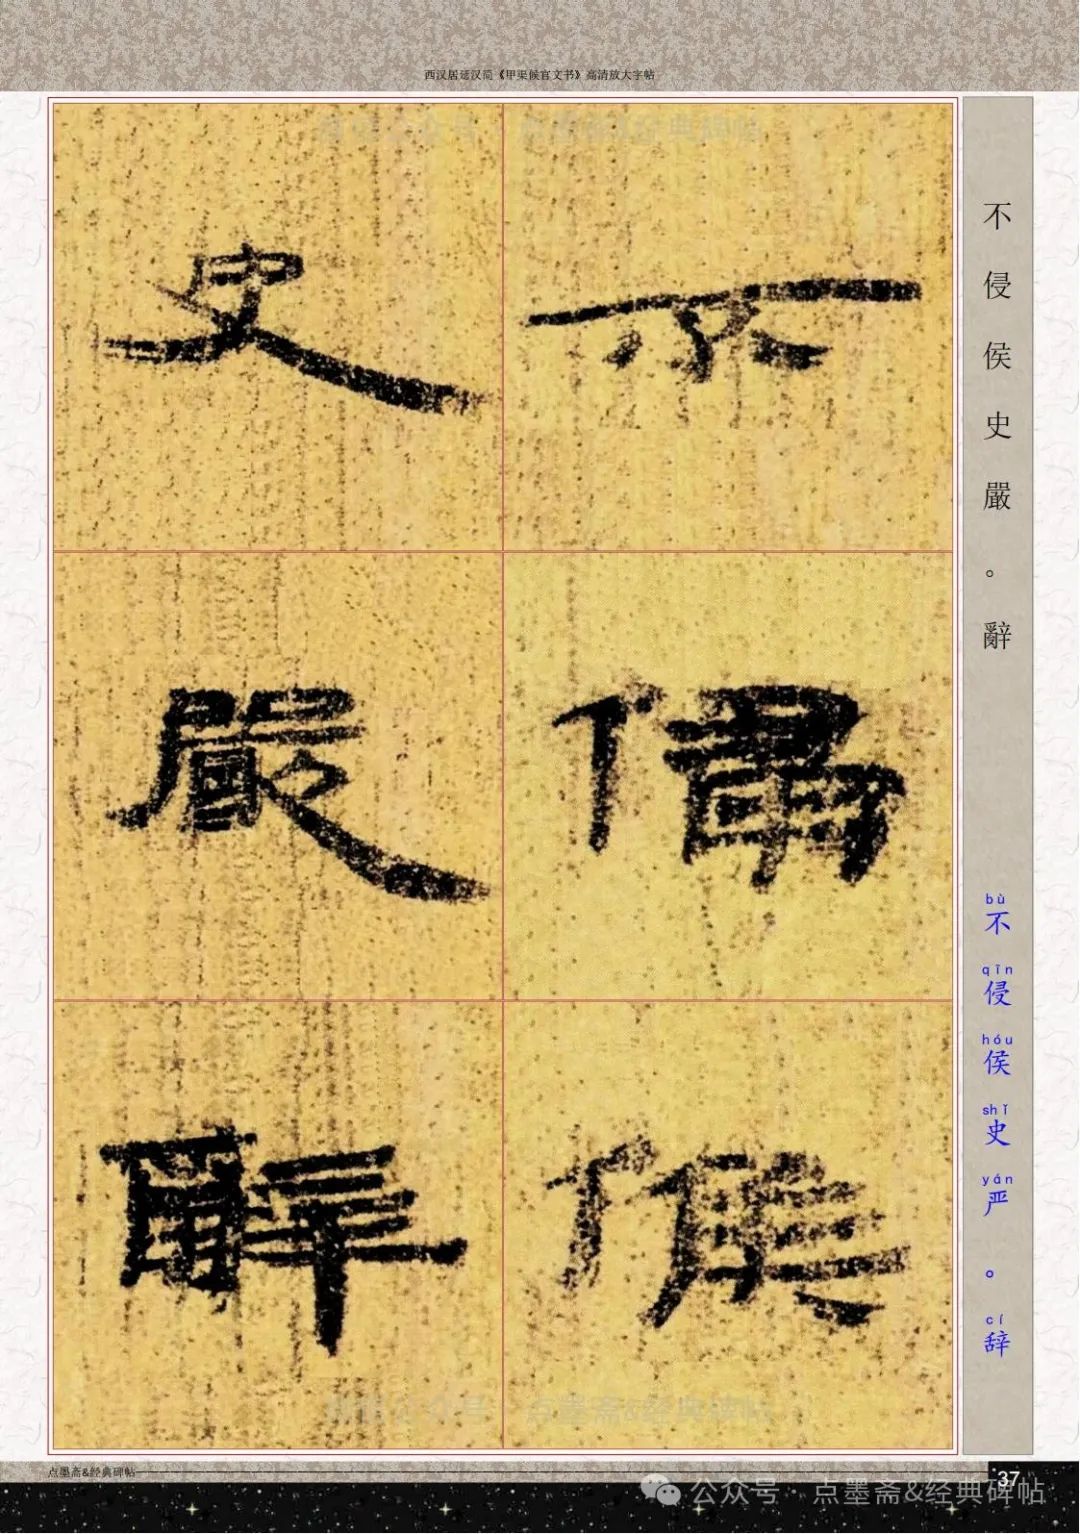 西汉居延汉简《甲渠候官文书》高清放大字帖
不侵侯史嚴。辭
bù qīn hóu shǐ yán cí
不侵侯史严。辞
不
侵
侯
史
嚴
辭
点墨斋&经典碑帖
37
公众号·点墨斋&经典碑帖